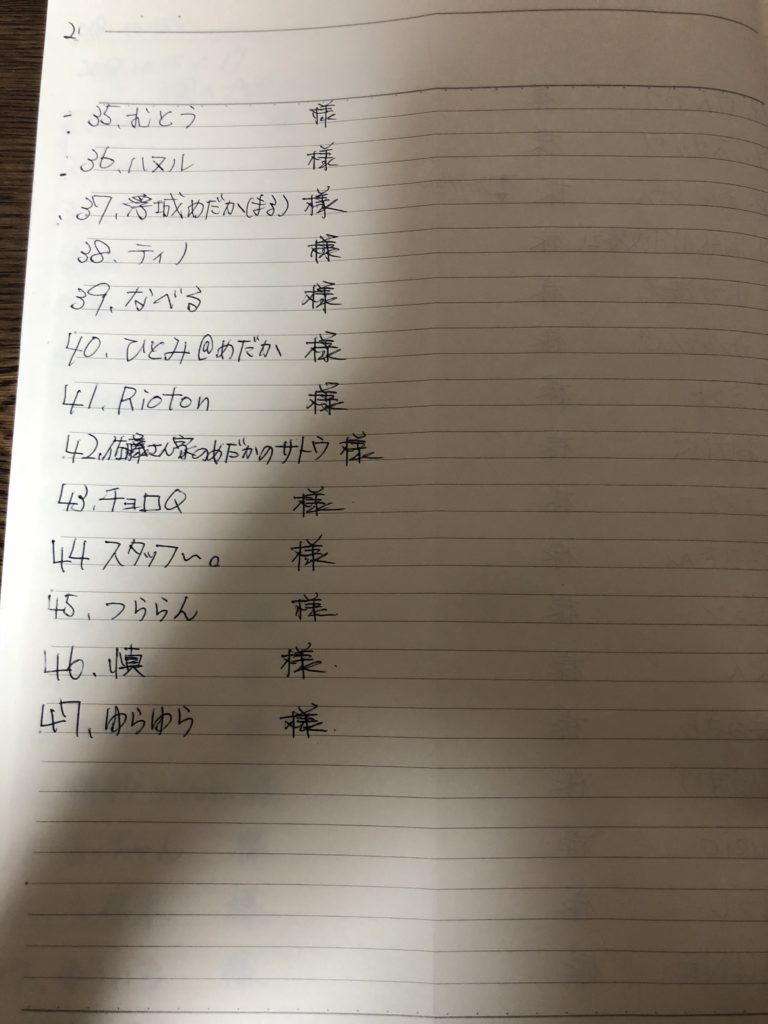 2
35、むとう 様
36、ハヌル 様
37、城めだか(まる) 様
38、ティノ 様
39、なべる 様
40、ひとみ@めだか 様
41、Rioton 様
42、佐藤さん家のめだかのサトウ 様
43、チョロQ 様
44 スタッフぃ。 様
45、つららん 様
46、慎 様
47、ゆらゆら 様